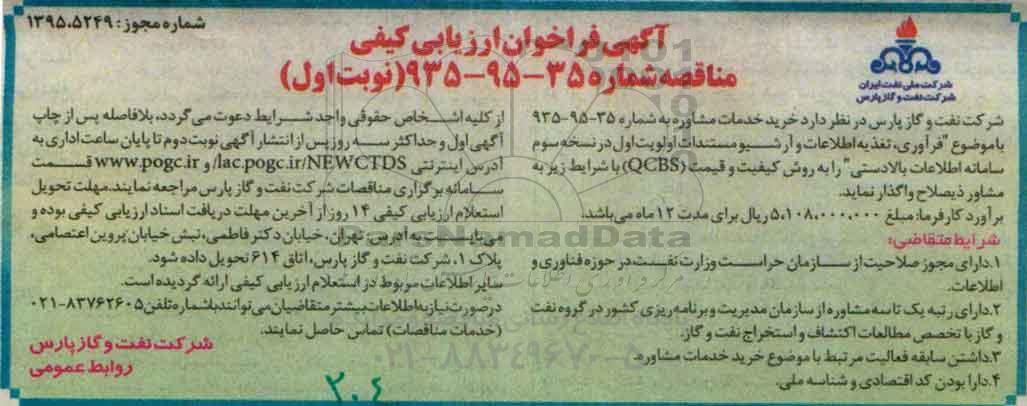 شماره مجوز: ۱۳۹۵.۵۲۴۹
آگهی فراخوان ارزیابی کیفی
مناقصه شماره ۳۵-۹۵-۹۳۵ (نوبت اول)
شرکت ملی نفت ایران
شرکت نفت و گاز پارس
شرکت نفت و گاز پارس در نظر دارد خرید خدمات مشاوره به شماره ۳۵-۹۵-۹۳۵
با موضوع "فرآوری، تغذیه اطلاعات و آرشیو مستندات اولویت اول در نسخه سوم
سامانه اطلاعات بالادستی" را به روش کیفیت و قیمت (QCBS) با شرایط زیر به
مشاور ذیصلاح واگذار نماید.
برآورد کارفرما: مبلغ ۵،۱۰۸،۰۰۰،۰۰۰ ریال برای مدت ۱۲ ماه می‌باشد.
شرایط متقاضی:
۱.دارای مجوز صلاحیت از سازمان حراست وزارت نفت در حوزه فناوری و
اطلاعات.
۲.دارای رتبه یک تا سه مشاوره از سازمان مدیریت و برنامه ریزی کشور در گروه نفت
و گاز با تخصص مطالعات اکتشاف و استخراج نفت و گاز.
۳.داشتن سابقه فعالیت مرتبط با موضوع خرید خدمات مشاوره.
۴.دارا بودن کد اقتصادی و شناسه ملی.
از کلیه اشخاص حقوقی واجد شرایط دعوت می‌گردد، بلافاصله پس از چاپ
آگهی اول و حداکثر سه روز پس از انتشار آگهی نوبت دوم تا پایان ساعت اداری به
آدرس اینترنتی lac.pogc.ir/NEWCTDS/ و www.pogc.ir قسمت
سامانه برگزاری مناقصات شرکت نفت و گاز پارس مراجعه نمایند. مهلت تحویل
استعلام ارزیابی کیفی ۱۴ روز از آخرین مهلت دریافت اسناد ارزیابی کیفی بوده و
می‌بایست به آدرس: تهران، خیابان دکتر فاطمی، نبش خیابان پروین اعتصامی،
پلاک ۱، شرکت نفت و گاز پارس، اتاق ۶۱۴ تحویل داده شود.
سایر اطلاعات مربوط در استعلام ارزیابی کیفی ارائه گردیده است.
در صورت نیاز به اطلاعات بیشتر متقاضیان می‌توانند با شماره تلفن ۸۳۷۶۲۶۰۵-۰۲۱
(خدمات مناقصات) تماس حاصل نمایند.
شرکت نفت و گاز پارس
روابط عمومی
ParsNamadData
۰۲۱-۸۸۳۴۹۶۷۰-۵
۲۰۶